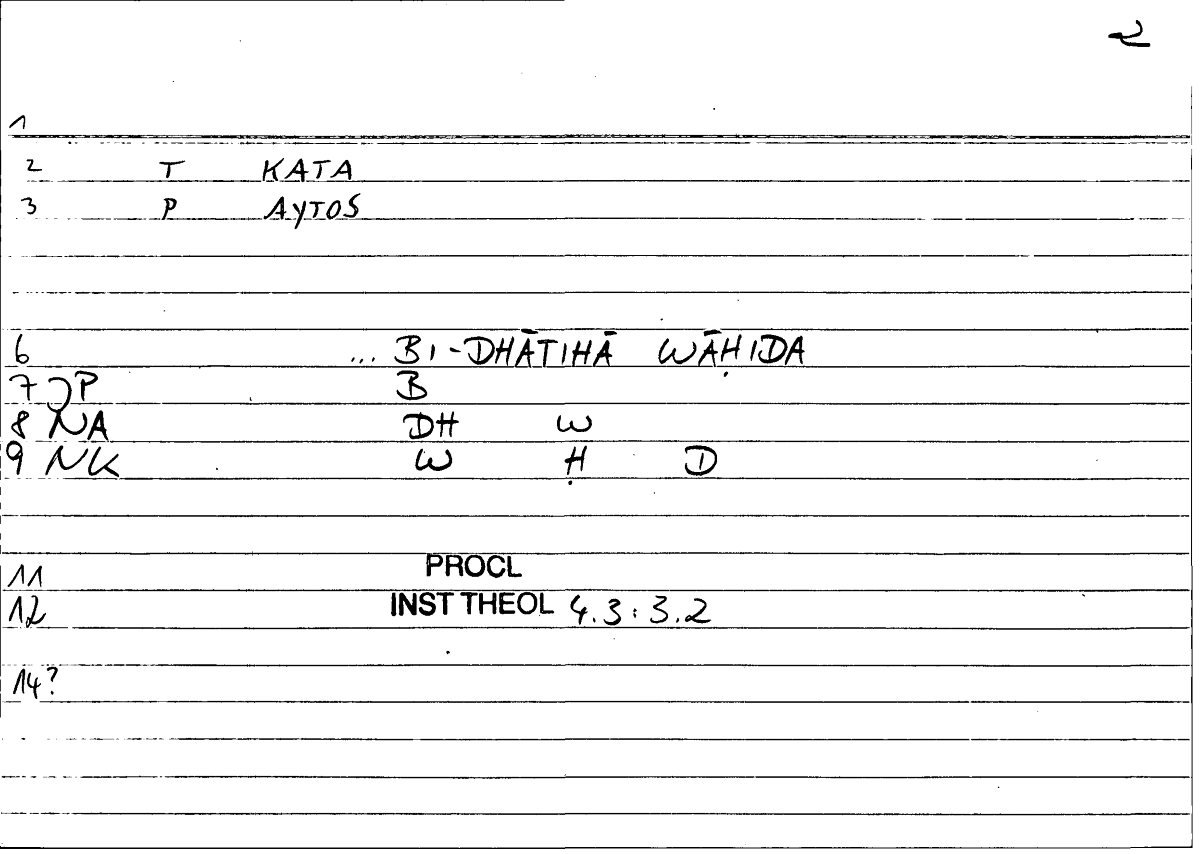 2
1
2 T KATA
3 P AYTOS
6 ... BI-DHĀTIHĀ WĀḤIDA
7 JP B
8 NA DH W
9 NK W Ḥ D
11 PROCL
12 INST THEOL 4.3:3.2
14?